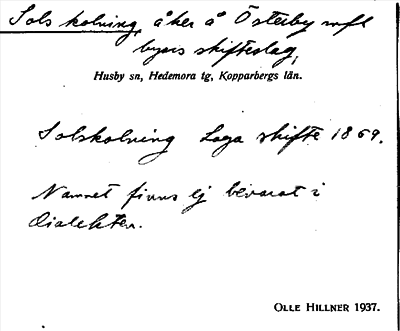 Sols kolning, åker å Österby mfl
byars skifteslag,
Husby sn, Hedemora tg, Kopparbergs län.
Solskolning Laga skifte 1869.
Namnet finns ej bevarat i
dialekten.
OLLE HILLNER 1937.